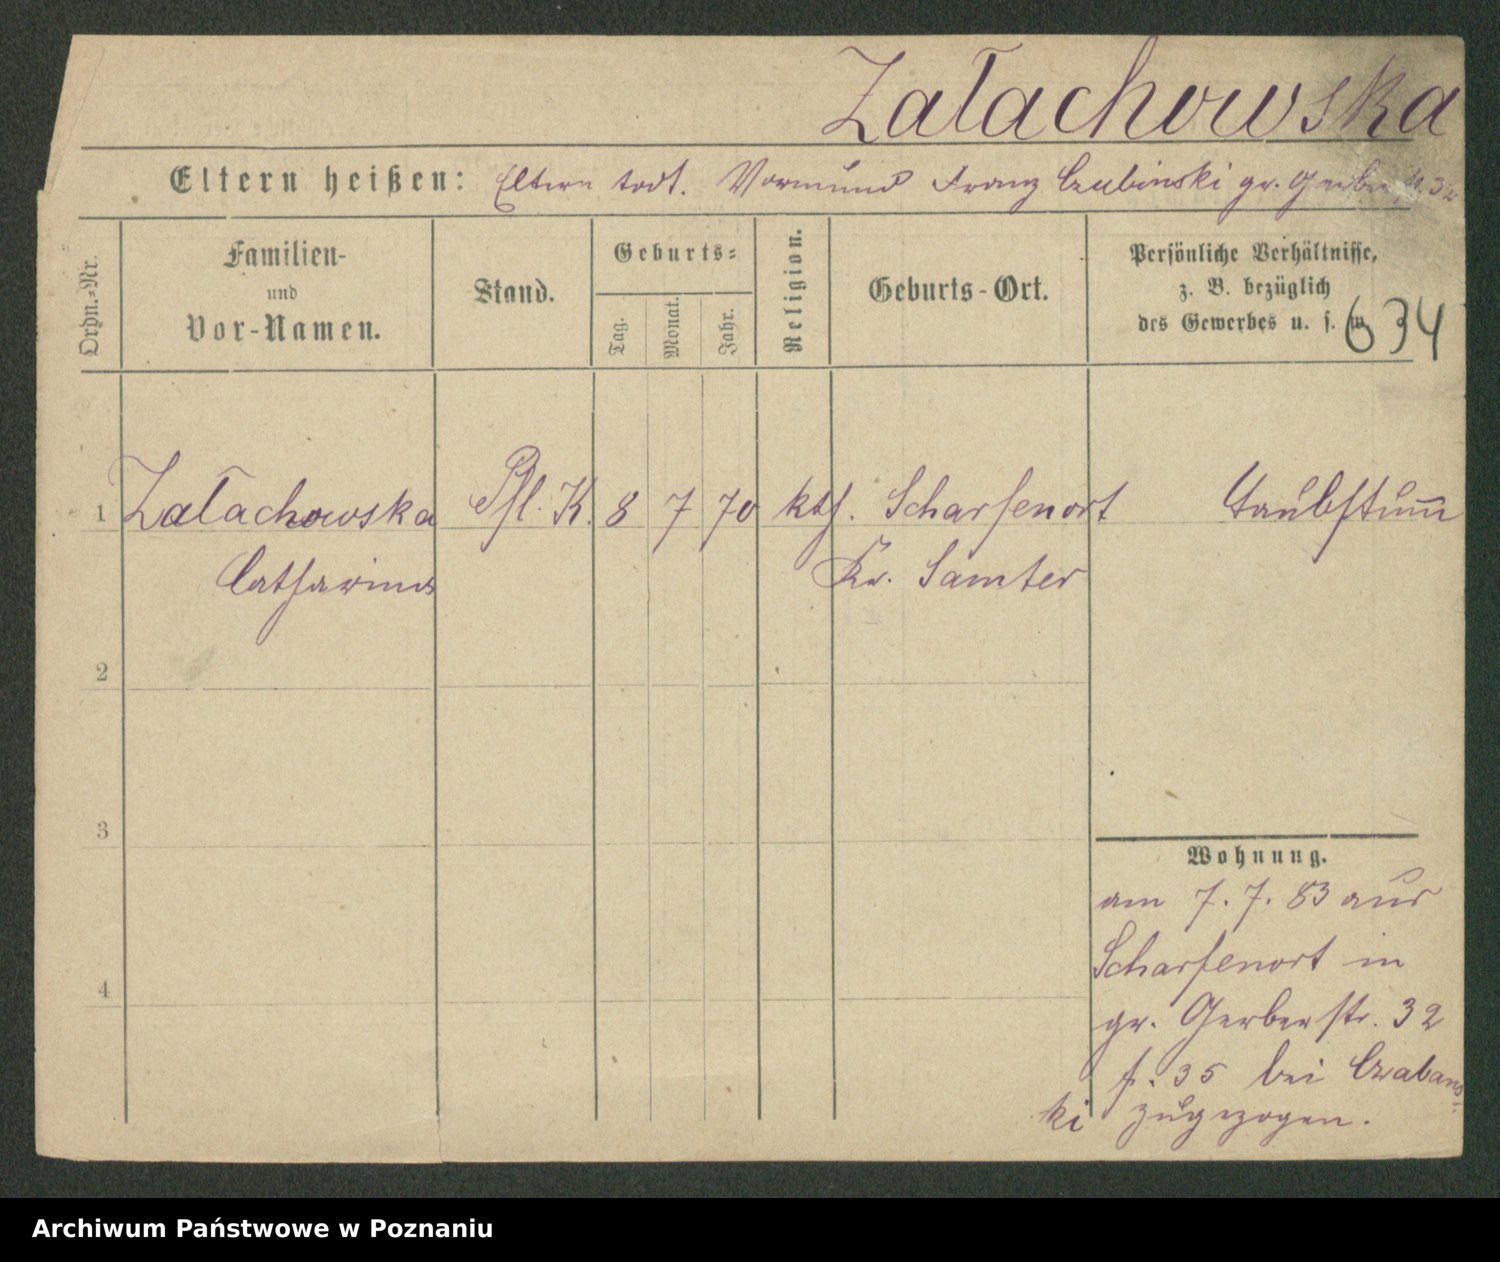 Załachowska
Eltern heißen: Eltern todt. Vormund Franz Czubinski gr. Gerber
Ordn.-Nr.
Familien-
und
Vor-Namen.
Stand.
Geburts-
Tag.
Monat.
Jahr.
Religion.
Geburts-Ort.
Persönliche Verhältnisse,
z. B. bezüglich
des Gewerbes u. s. w.
634
1 Załachowska Pfl. K. 8 7 70 kth. Scharfenort Taubstum̅
Catharina Kr. Samter
2
3
4
Wohnung.
am 7. 7. 83 aus
Scharfenort in
gr. Gerberstr. 32
f. 35 bei Czabans-
ki zugezogen.
Archiwum Państwowe w Poznaniu